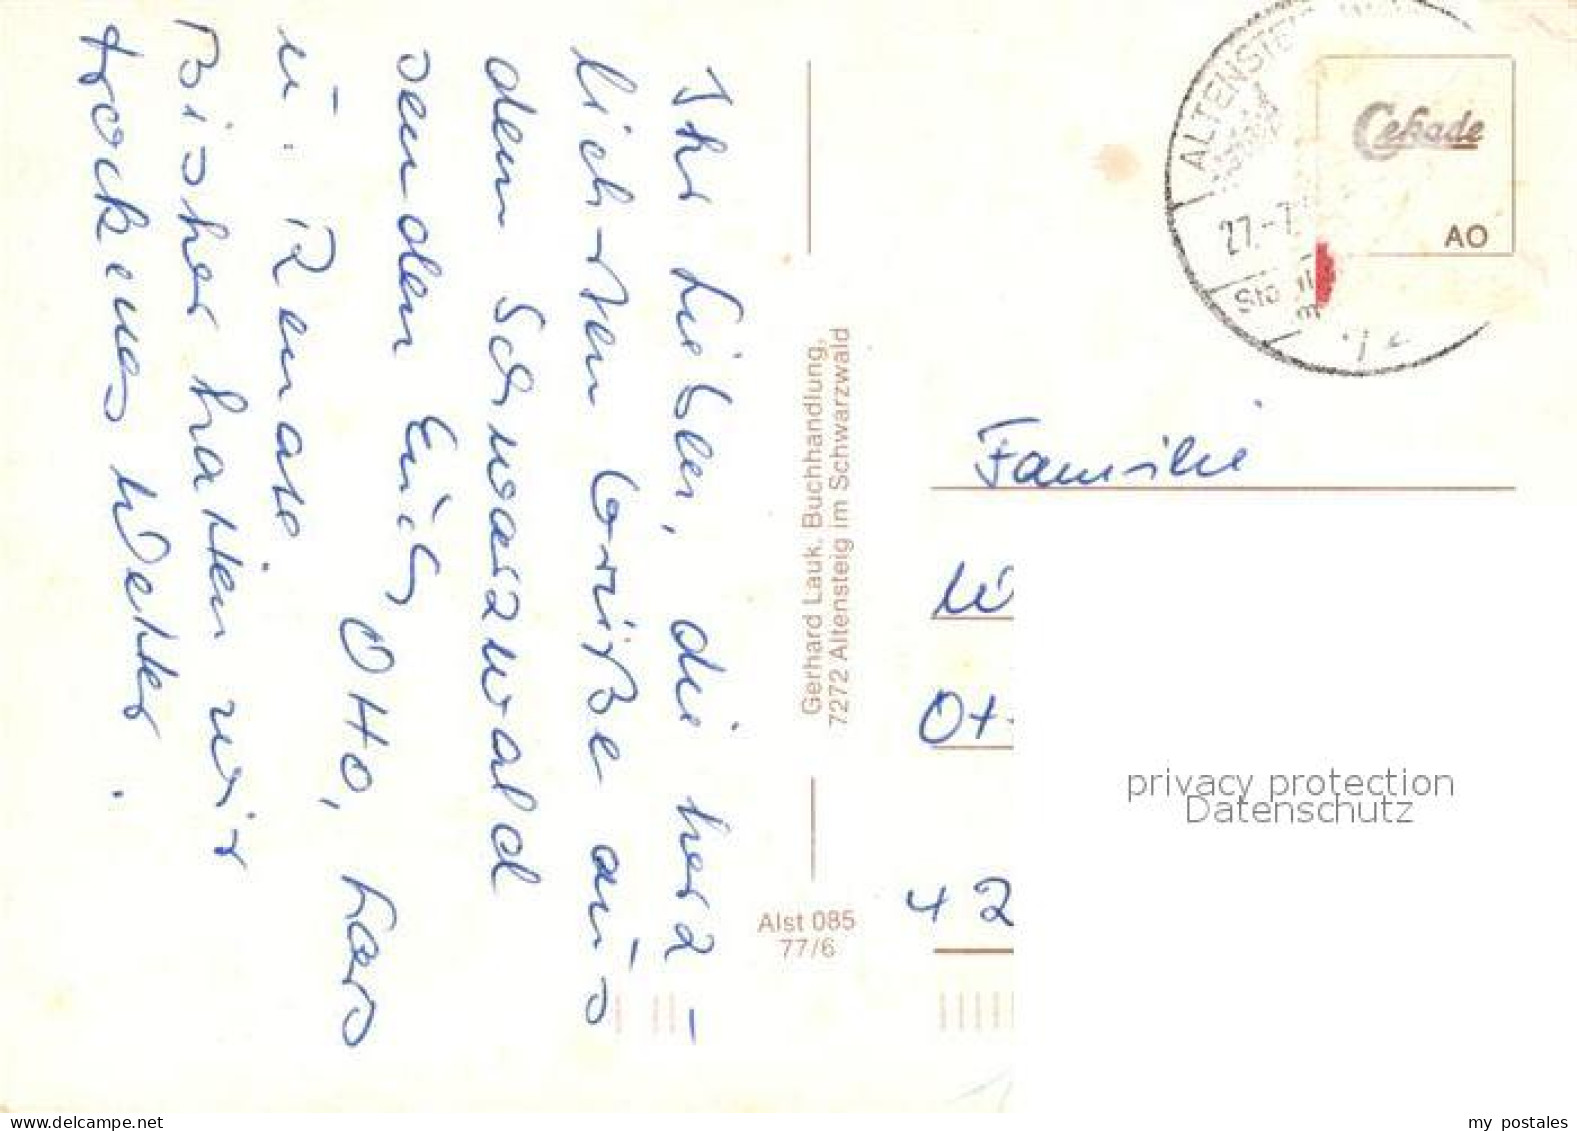 Ihr Lieben, die herz-
lichsten Grüße aus
dem Schwarzwald
senden Euch
Otto, Lars
u. Renate.
Bisher hatten wir
trockenes Wetter.
Gerhard Lauk, Buchhandlung,
7272 Altensteig im Schwarzwald
Alst 085
77/6
ALTENSTEIG
27.-7.
Cekade
AO
Familie
Ot
42
privacy protection
Datenschutz
www.delcampe.net
my_postales